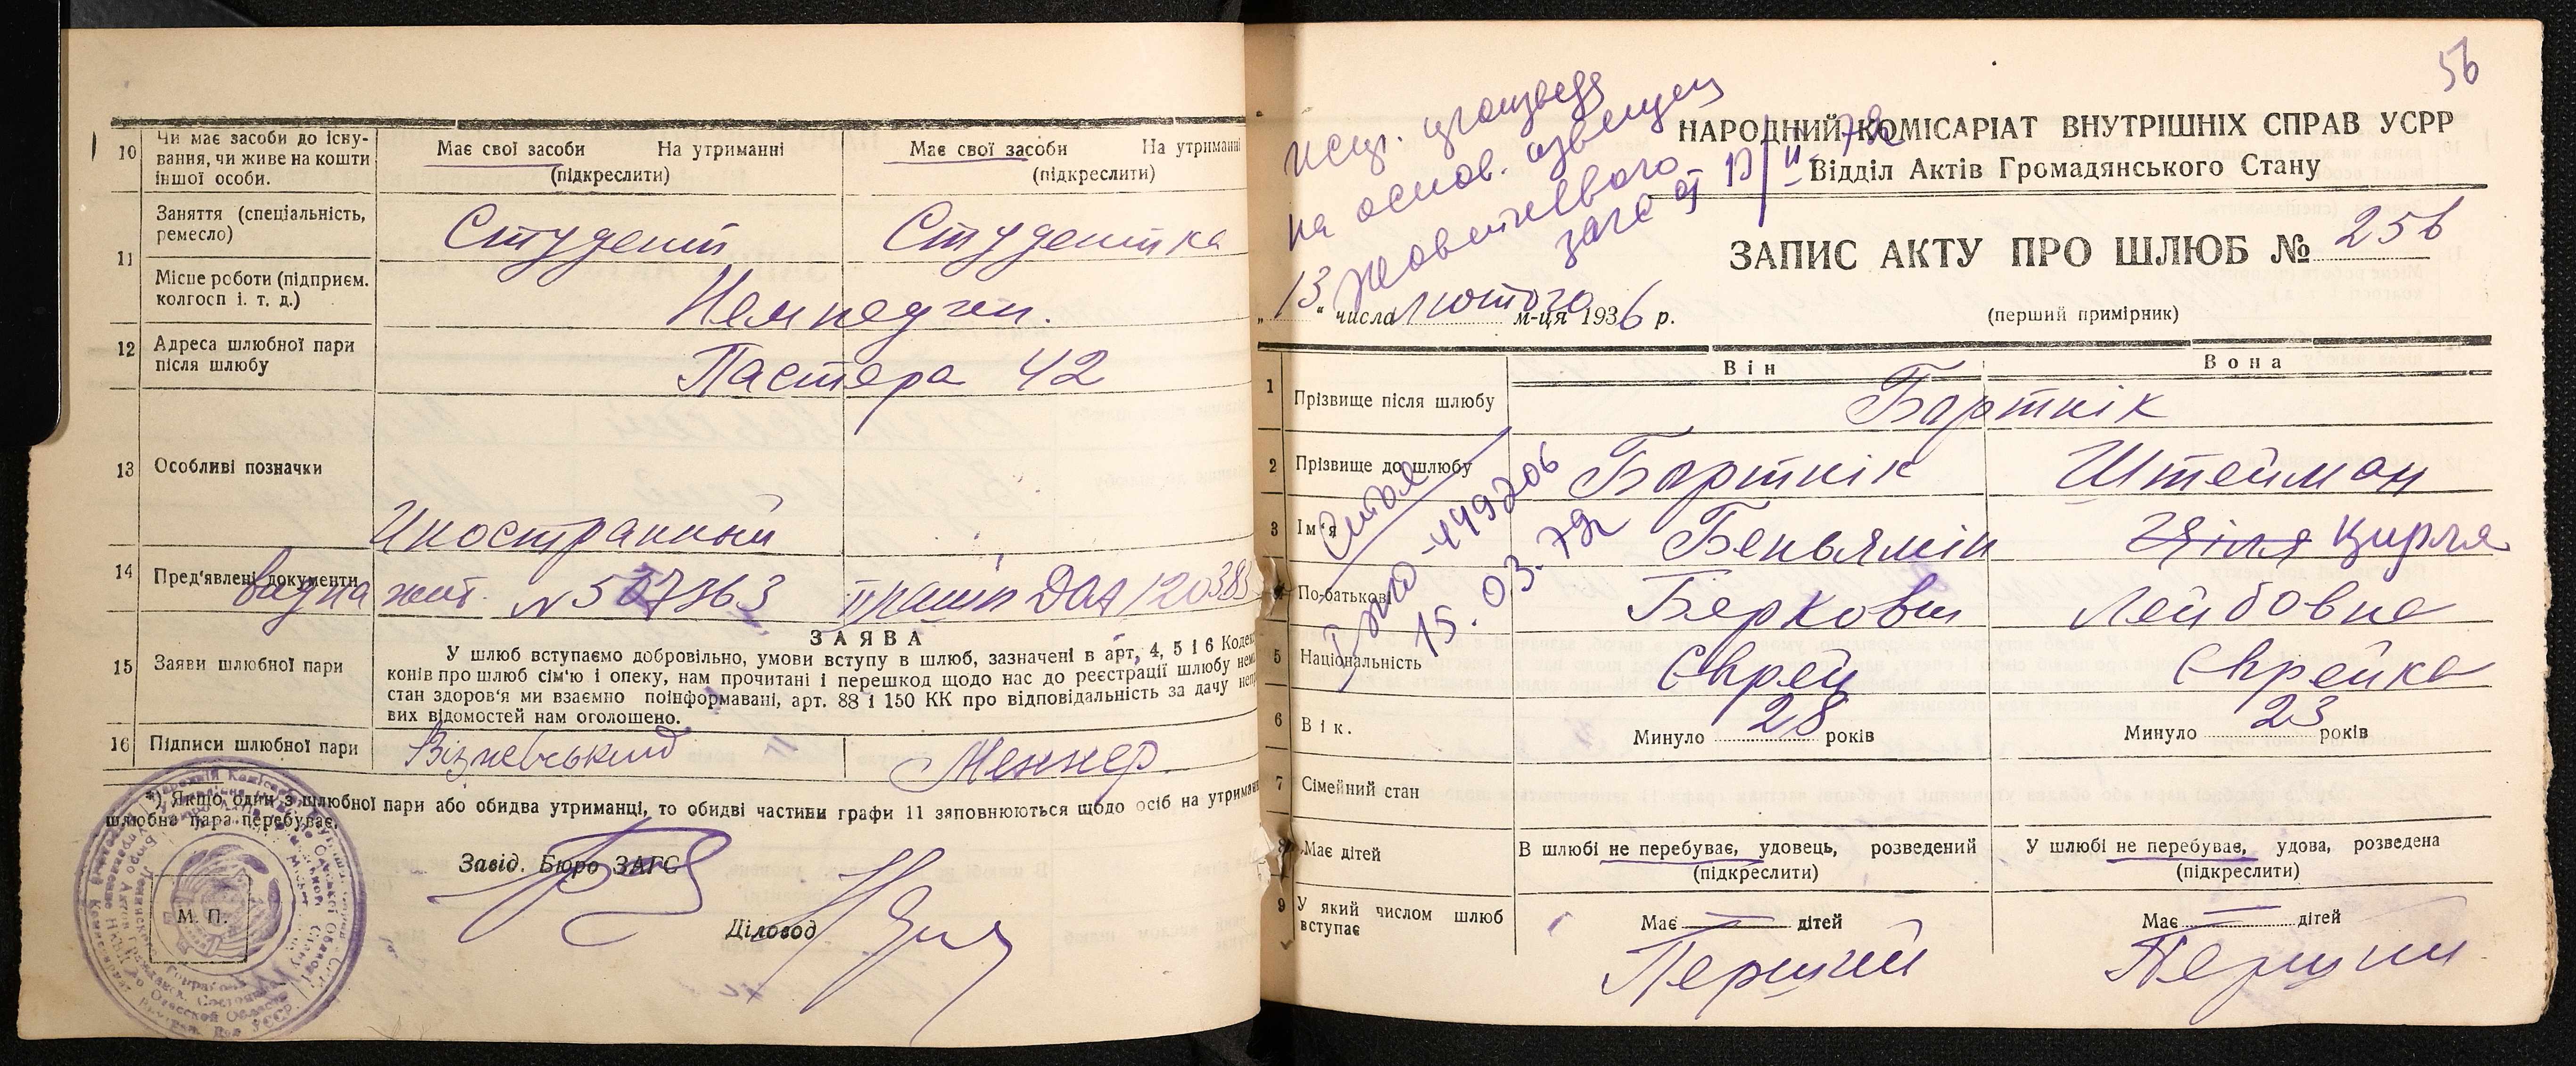 10 Чи має засоби до існу-
вання, чи живе на кошти
іншої особи.
Має свої засоби На утриманні
(підкреслити)
Має свої засоби На утриманні
(підкреслити)
11 Заняття (спеціальність,
ремесло)
Студент Студентка
Місце роботи (підприєм.
колгосп і. т. д.)
Нем педген.
12 Адреса шлюбної пари
після шлюбу
Пастера 42
13 Особливі позначки
Иностранный
14 Пред'явлені документи
вид на жит. N 527363
15 Заяви шлюбної пари
ЗАЯВА
У шлюб вступаємо добровільно, умови вступу в шлюб, зазначені в арт, 4, 5 і 6 Кодек
конів про шлюб сім'ю і опеку, нам прочитані і перешкод щодо нас до реєстрації шлюбу нема
стан здоров'я ми взаємно поінформавані, арт. 88 і 150 КК про відповідальність за дачу непр
вих відомостей нам оголошено.
16 Підписи шлюбної пари
*) Якщо один з шлюбної пари або обидва утриманці, то обидві частини графи 11 заповнюються щодо осіб на утриман
шлюбна пара перебуває.
Завід. Бюро ЗАГС
Діловод
М. П.
56
на основ. извещен
Жовтневого
загс от 13/II-72
НАРОДНИЙ КОМІСАРІАТ ВНУТРІШНІХ СПРАВ УСРР
Відділ Актів Громадянського Стану
ЗАПИС АКТУ ПРО ШЛЮБ № 256
(перший примірник)
„13" числа лютого м-ця 1936 р.
Він Вона
1 Прізвище після шлюбу Бортнік
2 Прізвище до шлюбу Бортнік Штейман
3 Ім'я Беньямін Ціля Цирля
4 По-батькові Беркович Лейбовна
5 Національність Єврей Єврейка
6 Вік.
Минуло 28 років
Минуло 23 років
7 Сімейний стан
8 Має дітей
В шлюбі не перебуває, удовець, розведений
(підкреслити)
У шлюбі не перебуває, удова, розведена
(підкреслити)
9 У який числом шлюб
вступає
Має дітей
Має дітей
Перший Перший
15.03.72